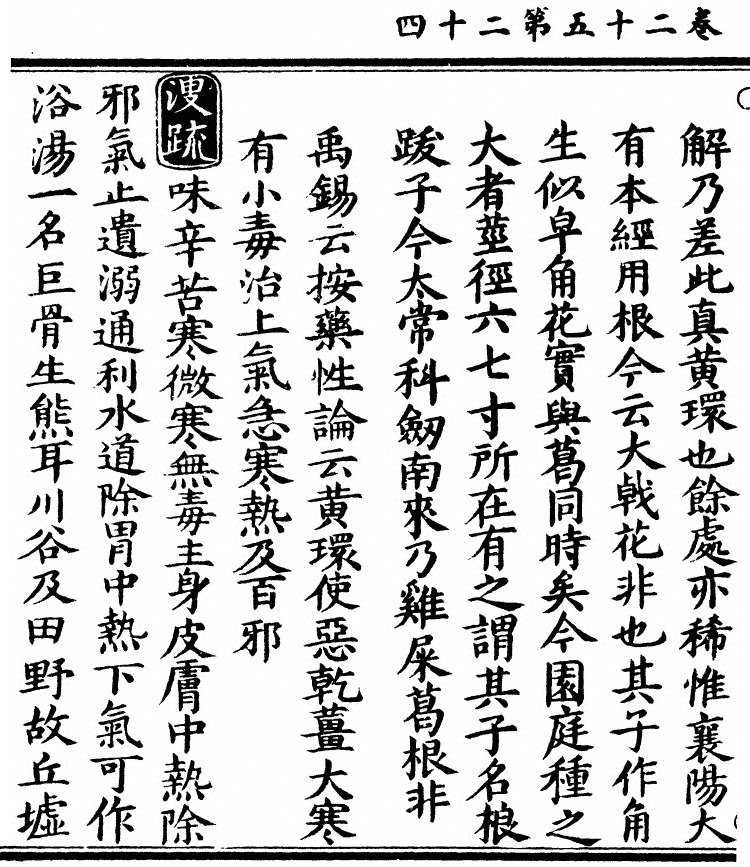 卷二十五第二十四
解乃差此真黄環也餘處亦稀惟襄陽大
有本經用根今云大戟花非也其子作角
生似皁角花實與葛同時矣今園庭種之
大者莖徑六七寸所在有之謂其子名狼
跋子今太常科劒南來乃雞屎葛根非
禹錫云按藥性論云黄環使惡乾薑大寒
有小毒治上氣急寒熱及百邪
溲疏味辛苦寒微寒無毒主身皮膚中熱除
邪氣止遺溺通利水道除胃中熱下氣可作
浴湯一名巨骨生熊耳川谷及田野故丘墟